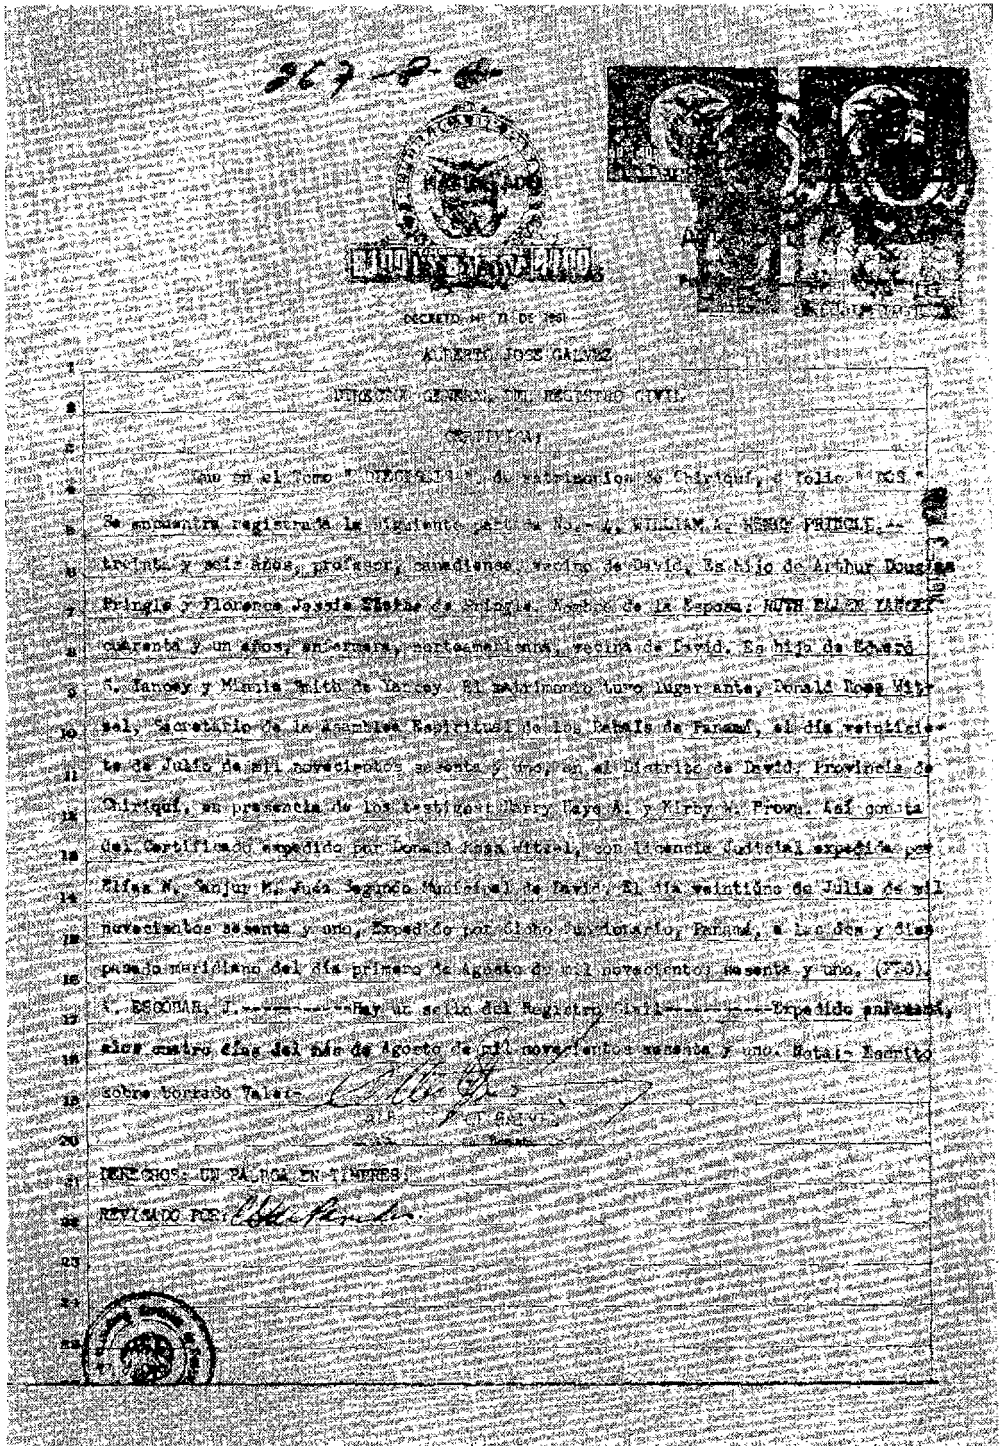 DECRETO Nº 71 DE 1961
ALBERTO JOSE GALVEZ
1
2 DIRECTOR GENERAL DEL REGISTRO CIVIL
3 CERTIFICA;
4 Que en el Tomo " DIECISEIS " de matrimonios de Chiriquí, a folio " DOS "
5 Se encuentra registrada la siguiente partida No.- WILLIAM A. PRINGLE.--
6 treinta y seis años, profesor, canadiense, vecino de David, Es hijo de Arthur Douglas
7 Pringle y Florence Jessie de Pringle. Nombre de la Esposa; RUTH ELLEN YANCEY
8 cuarenta y un años, enfermera, norteamericana, vecina de David. Es hija de Edward
9 S. Yancey y Minnie Smith de Yancey. El matrimonio tuvo lugar ante, Donald Ross Wit-
10 zel, Secretario de la Asamblea Espiritual de los Bahaís de Panamá, el día veintisie-
11 te de Julio de mil novecientos sesenta y uno, en el Distrito de David, Provincia de
12 Chiriquí, en presencia de los testigos: Harry Haye A. y Kirby W. Brown. Así consta
13 del Certificado expedido por Donald Ross Witzel, con licencia Judicial expedida por
14 Elías N. Sanjur M. Juez Segundo Municipal de David, El día veintiúno de Julio de mil
15 novecientos sesenta y uno, Expedido por dicho funcionario, Panamá, a las dos y diez
16 pasado meridiano del día primero de Agosto de mil novecientos sesenta y uno, (FDO).
17 ESCOBAR, J.-----------Hay un sello del Registro Civil-----------Expedido enPanamá,
18 alos cuatro días del més de Agosto de mil novecientos sesenta y uno. Nota:- Escrito
19 sobre borrado Vale:-
20
21 DERECHOS: UN BALBOA EN TIMBRES.
22 REVISADO POR:
23
24
25